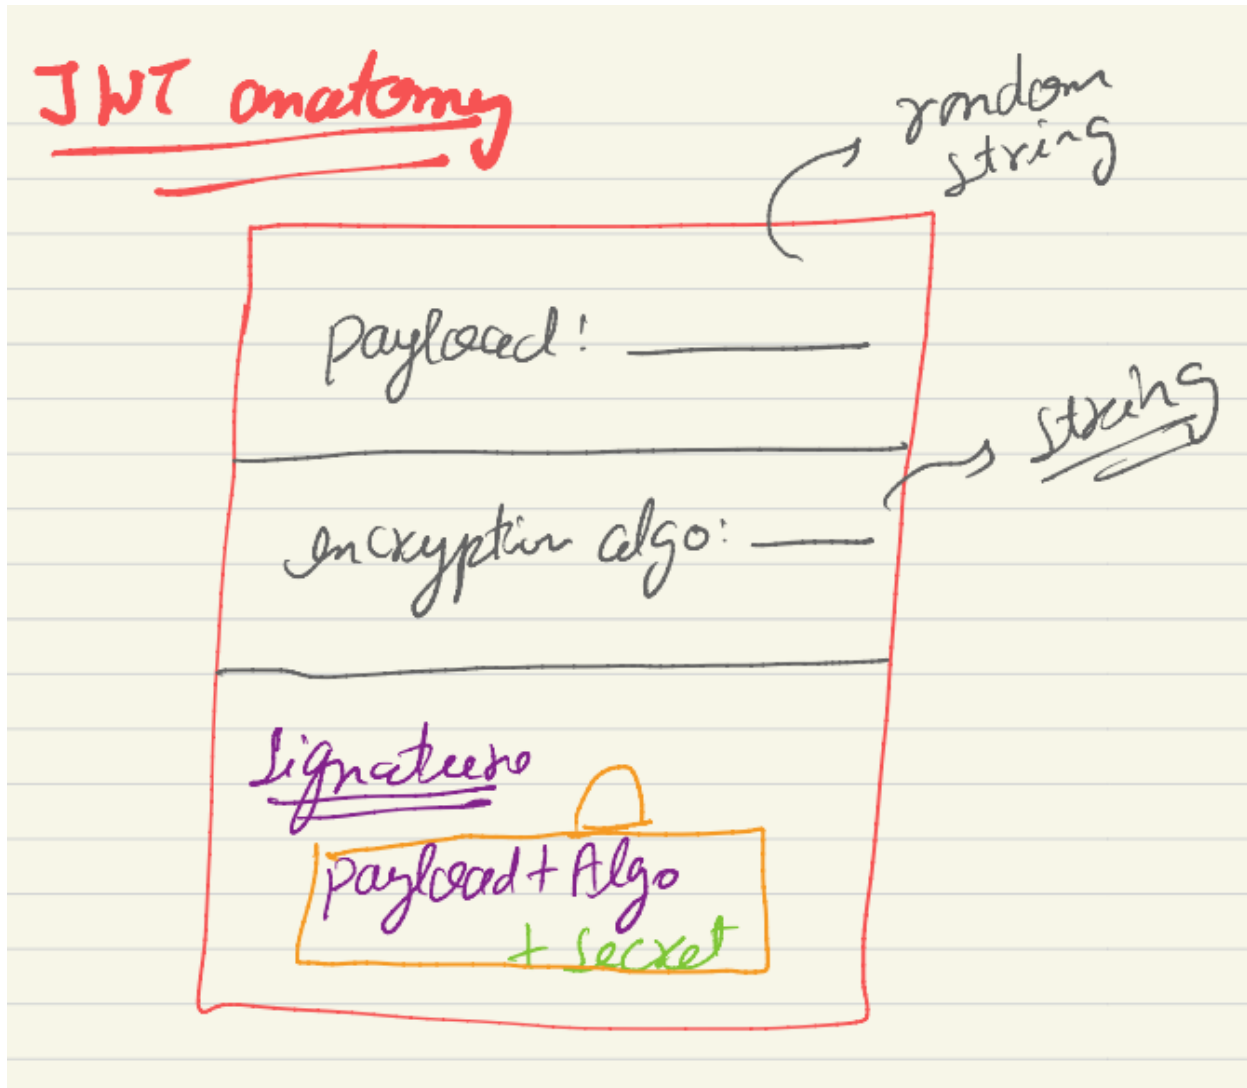 JWT anatomy
random
string
payload: ______
string
encryption algo: ____
Signature
payload + Algo
+ secret